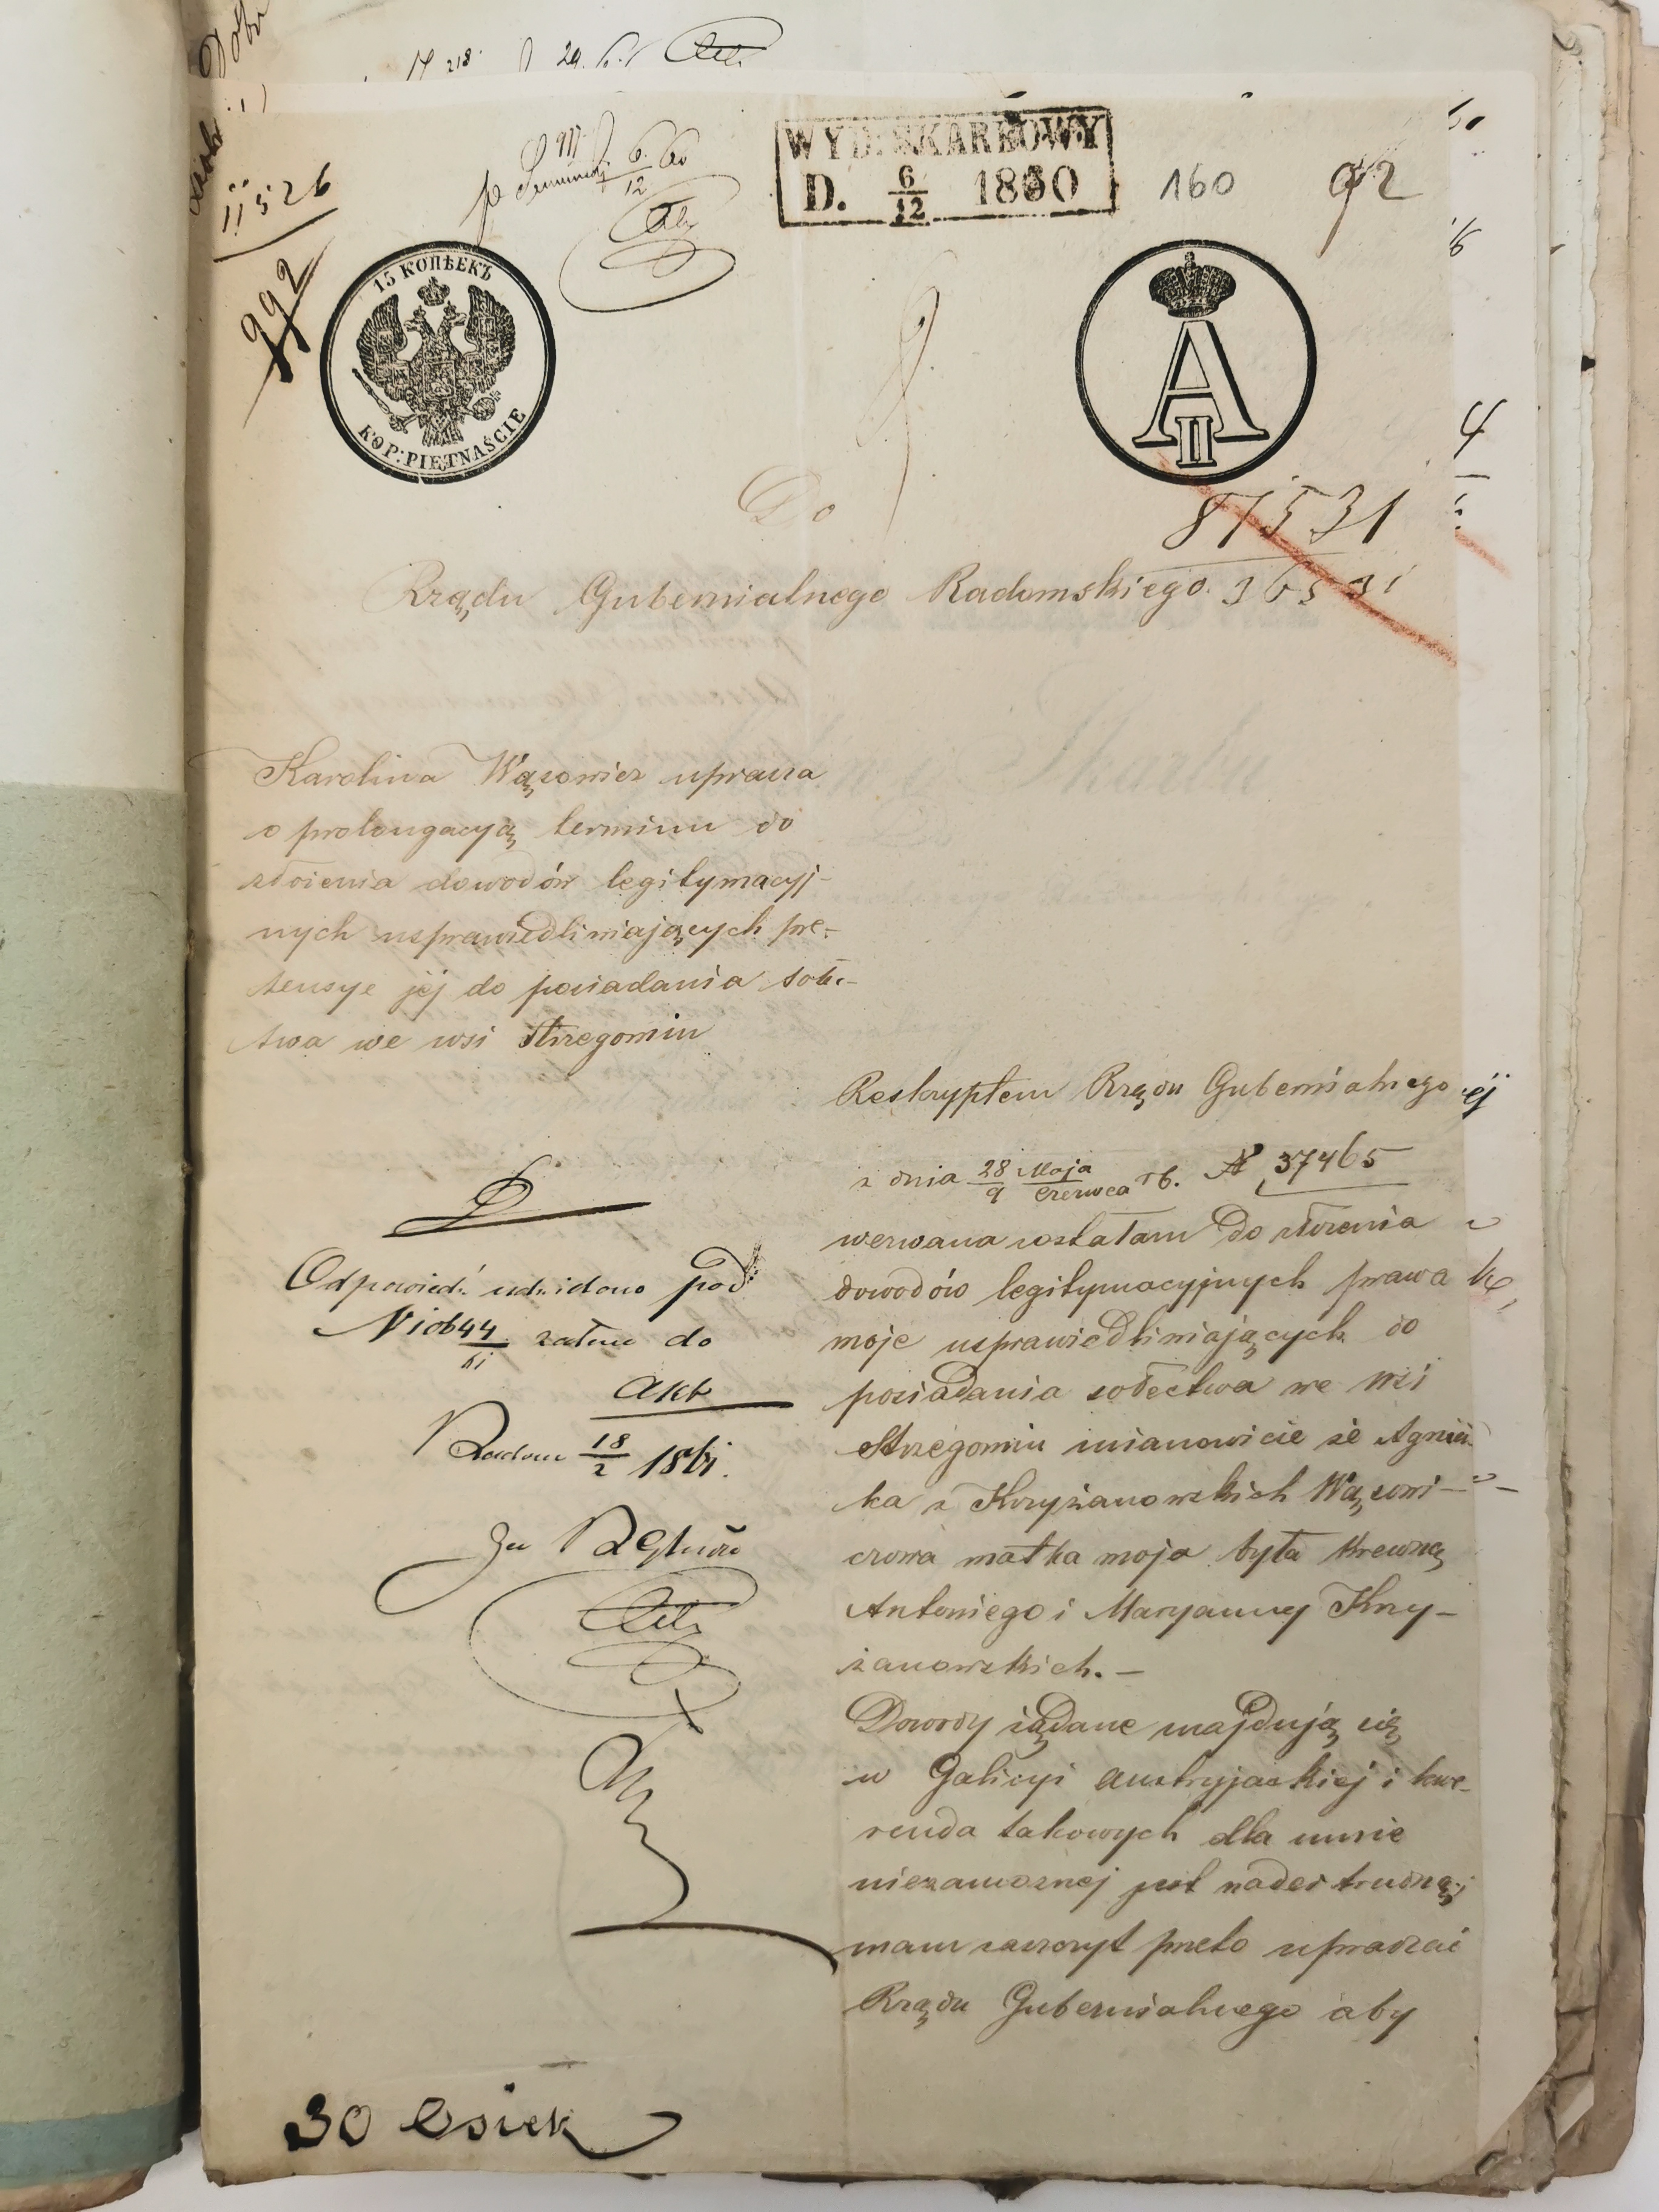 11526
992
WYD. SKARBOWY
D. 6/12 1860
160
92
15 КОПѢЕКЪ
KOP: PIĘTNAŚCIE
A II
87531
Do
Rządu Gubernialnego Radomskiego.
Karolina Wąsowicz uprasza
o prolongacyą terminu do
złożenia dowodów legitymacyj-
nych usprawiedliwiających pre-
tensye jéj do posiadania sołe-
twa we wsi Strzegomiu
Reskryptem Rządu Gubernialnego
z dnia 28 Maja / 9 Czerwca rb. N 37465
wezwana zostałam do złożenia
dowodów legitymacyjnych prawa
moje usprawiedliwiających do
posiadania sołectwa we wsi
Strzegomiu mianowicie że Agniesz-
ka z Krzyżanowskich Wąsowi-
czowa matka moja była krewną
Antoniego i Maryanny Krzy-
żanowskich. —
Dowody żądane znajdują się
w Galicyi Austryjackiej i kwe-
renda takowych dla mnie
niezamożnej jest nader trudną;
mam zaszczyt przeto upraszać
Rządu Gubernialnego aby
Odpowiedź udzielono pod
zatem do
Akt
Radom 18/2 1861.
30 Osiek